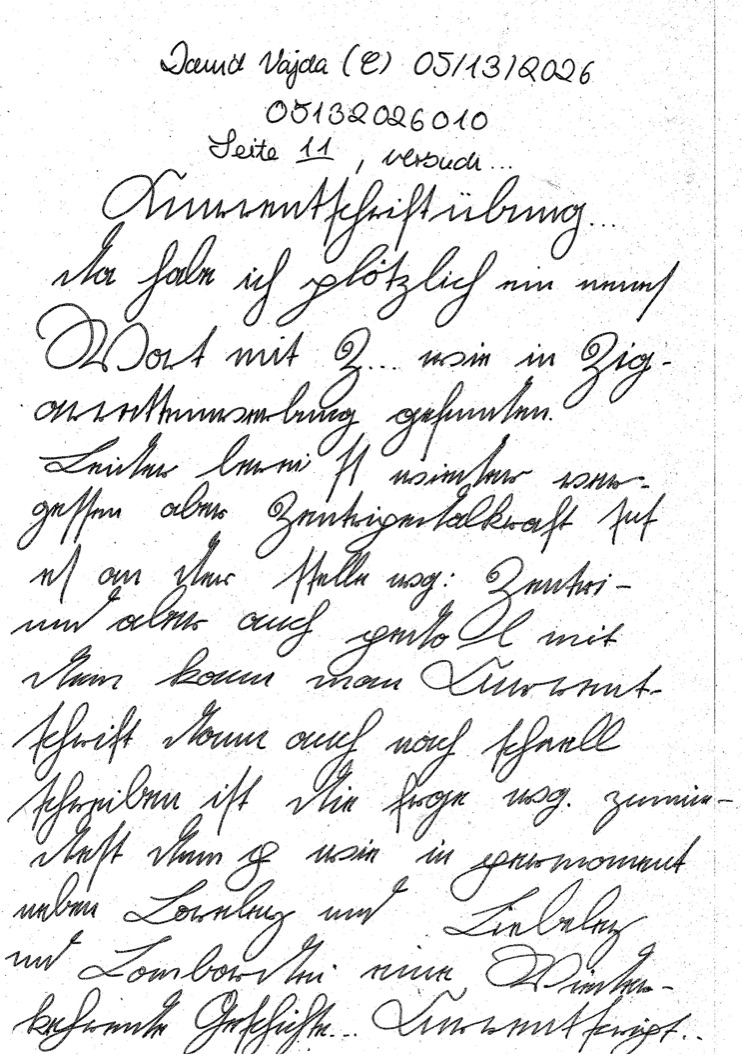 David Vajda (C) 05/13/2026
05132026010
Seite 11, versuch...
Kurrentschriftübung...
da habe ich plötzlich ein neues
Wort mit Z... wie in Zig-
arrettenwerbung gefunden.
Leider wieder ver-
gessen aber Zentripetalkraft hat
es an der Stelle wsg: Zentri-
und aber auch mit
dem kann man Kurrent-
schrift dann auch noch schnell
schreiben ist die frage wsg. zumin-
dest dem p wie in permanent
neben Loreley und Liebeley
und Lombardei eine Wieder-
kehrende Geschichte... Kurrentscript..